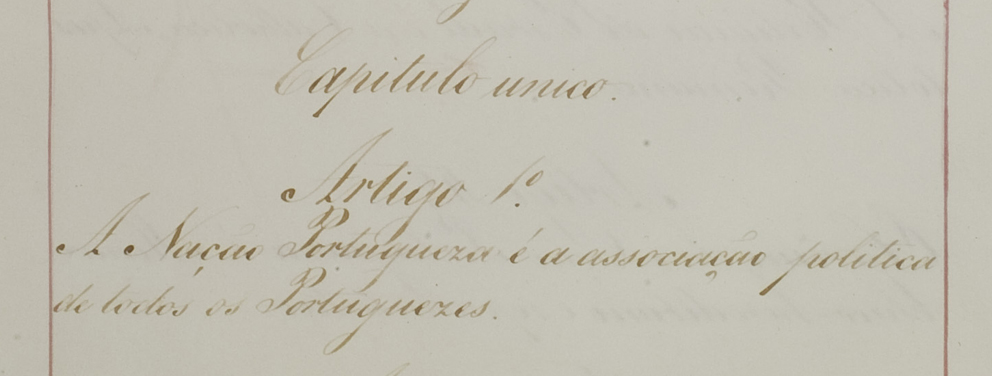 Capitulo unico.
Artigo 1.º
A Nação Portugueza é a associação politica
de todos os Portuguezes.